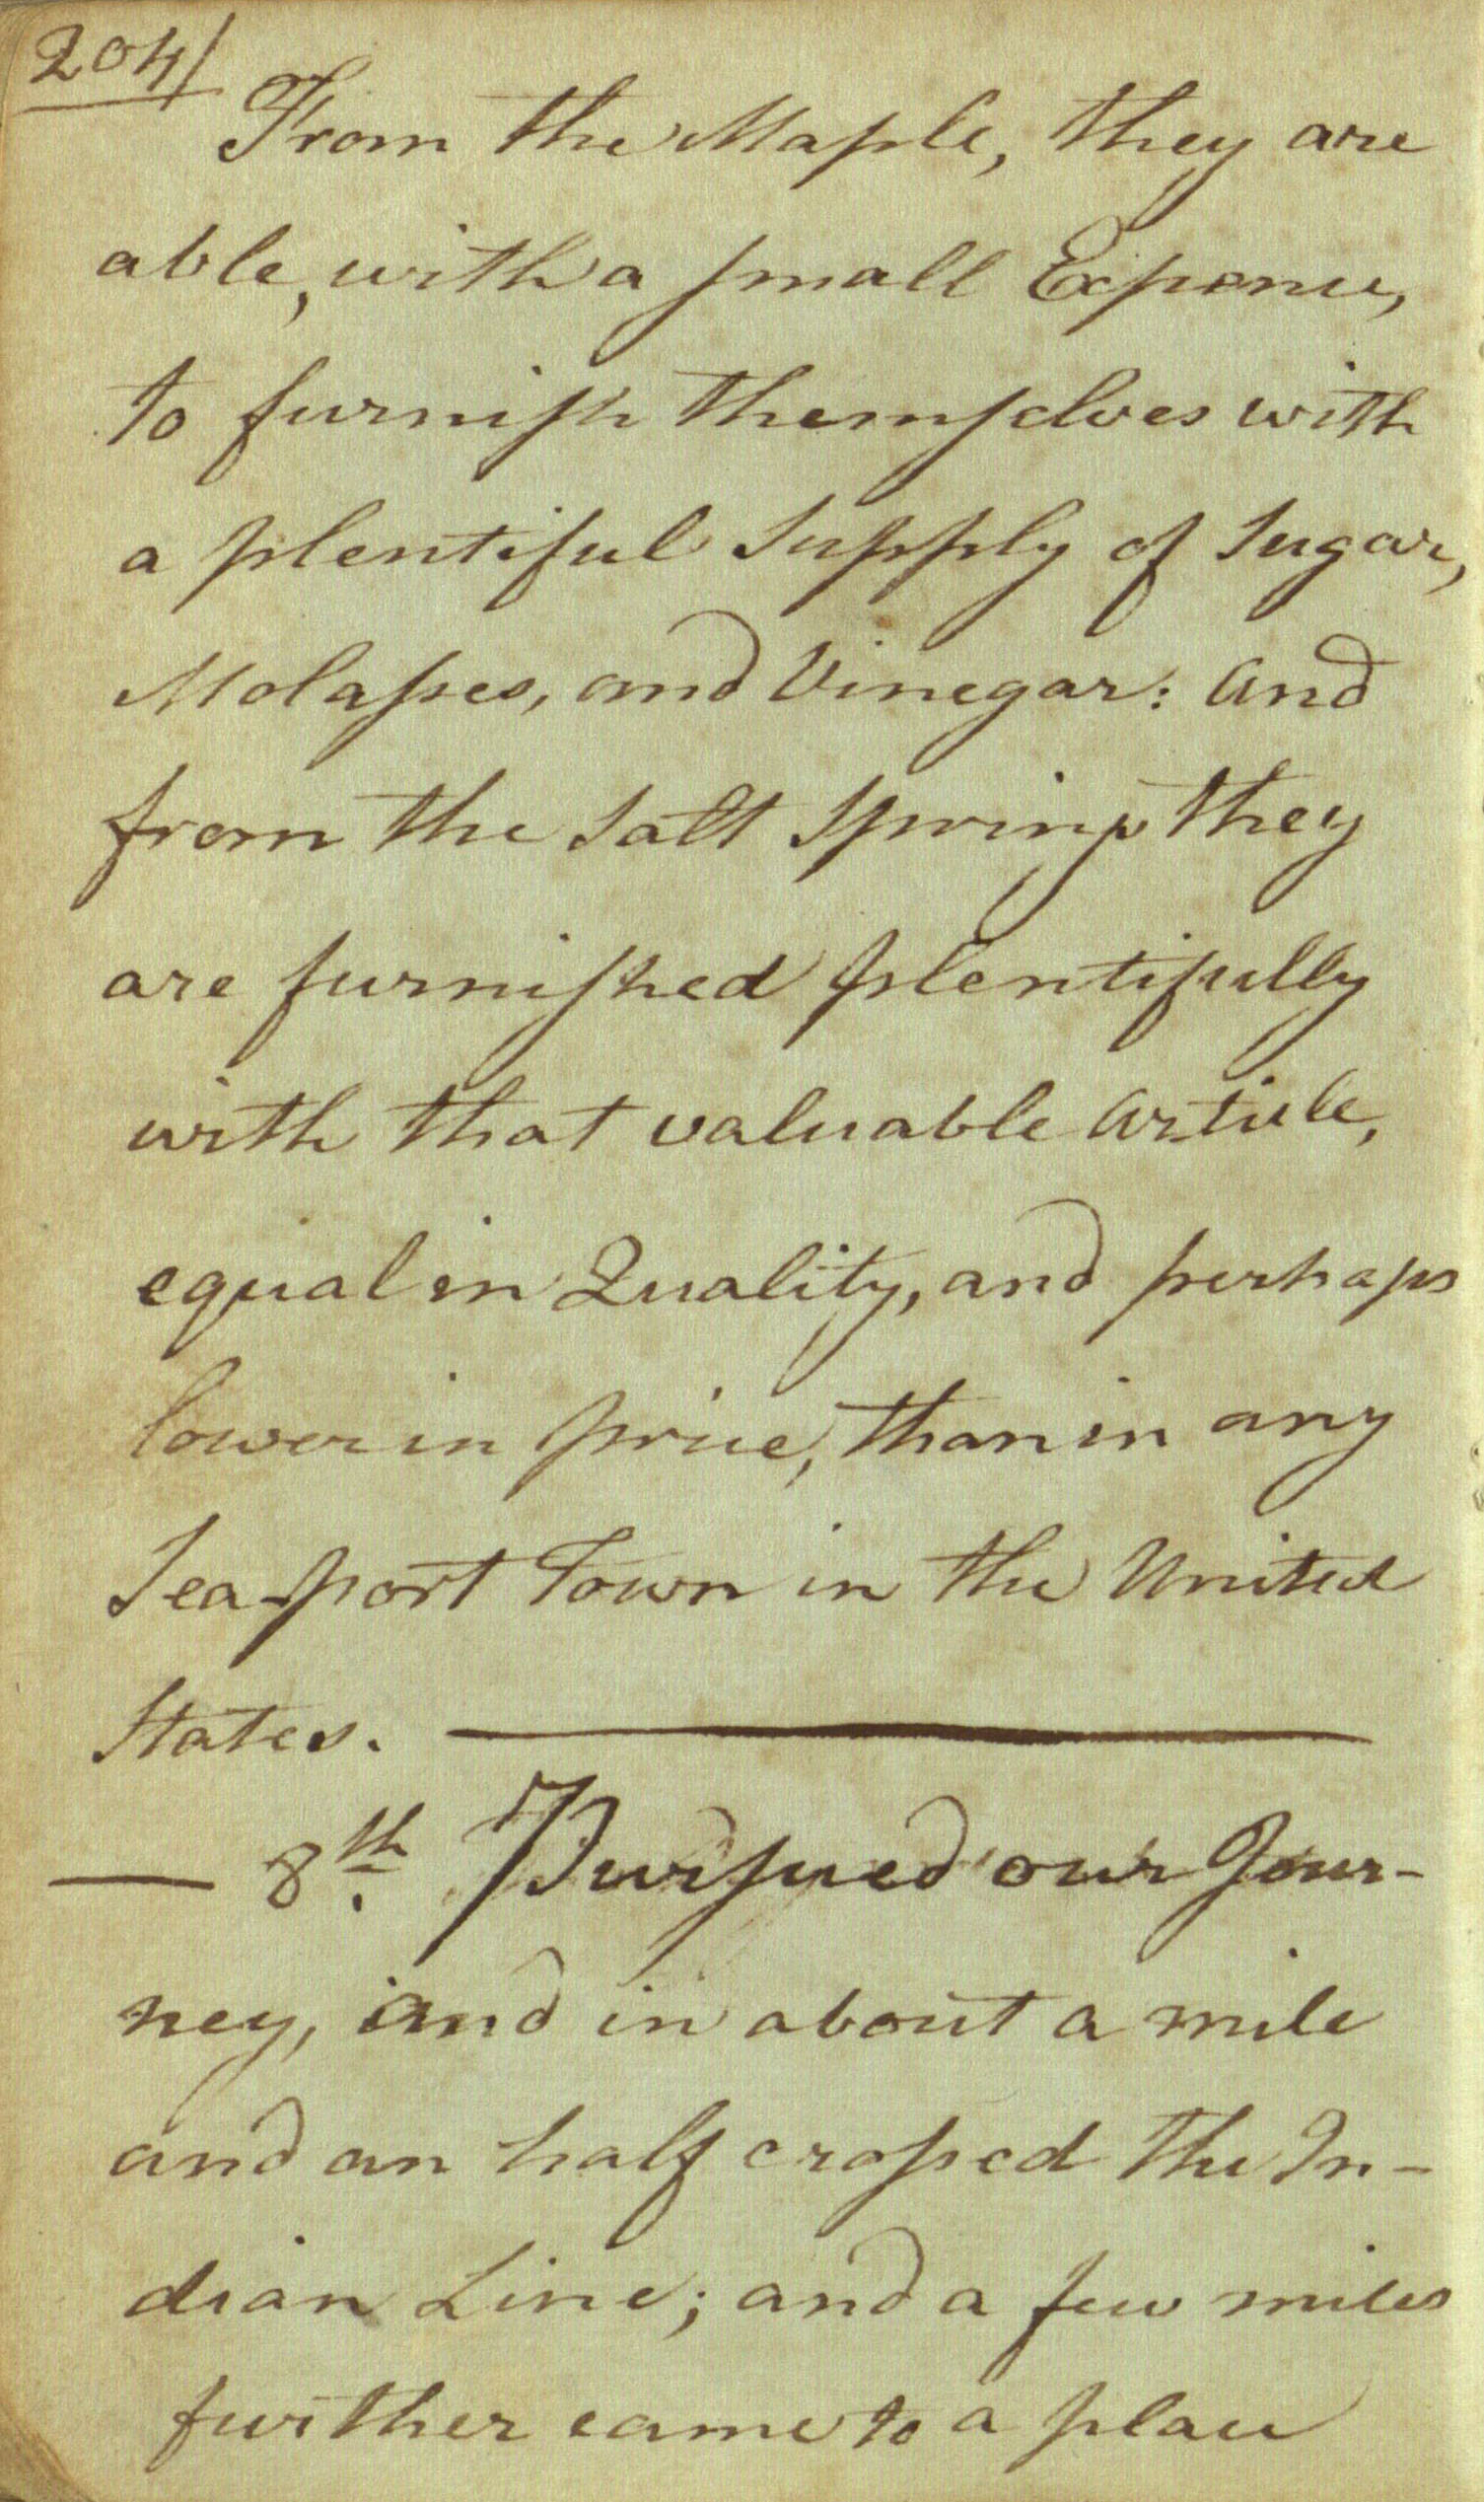 204/
From the Maple, they are
able, with a small Expence,
to furnish themselves with
a plentiful Supply of Sugar,
Molasses, and Vinegar: and
from the Salt Springs they
are furnished plentifully
with that valuable Article,
equal in Quality, and perhaps
lower in price, than in any
Sea-port Town in the United
States. ———
— 8th. Pursued our Jour-
ney, and in about a mile
and an half crossed the In-
dian Line; and a few miles
further came to a place